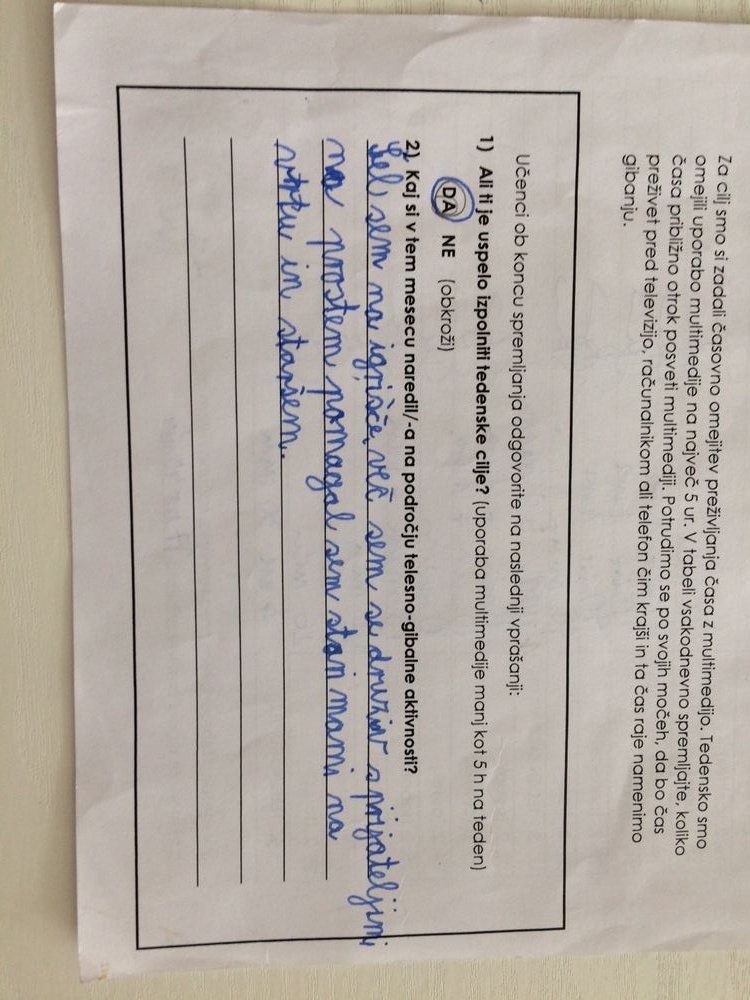 Za cilj smo si zadali časovno omejitev preživljanja časa z multimedijo. Tedensko smo
omejili uporabo multimedije na največ 5 ur. V tabeli vsakodnevno spremljajte, koliko
časa približno otrok posveti multimediji. Potrudimo se po svojih močeh, da bo čas
preživet pred televizijo, računalnikom ali telefon čim krajši in ta čas raje namenimo
gibanju.
Učenci ob koncu spremljanja odgovorite na naslednji vprašanji:
1) Ali ti je uspelo izpolniti tedenske cilje? (uporaba multimedije manj kot 5 h na teden)
DA NE (obkroži)
2) Kaj si v tem mesecu naredil/-a na področju telesno-gibalne aktivnosti?
Šel sem na igrišče, več sem se družil s prijateljimi
na prostem pomagal sem stari mami na
vrtu in staršem.